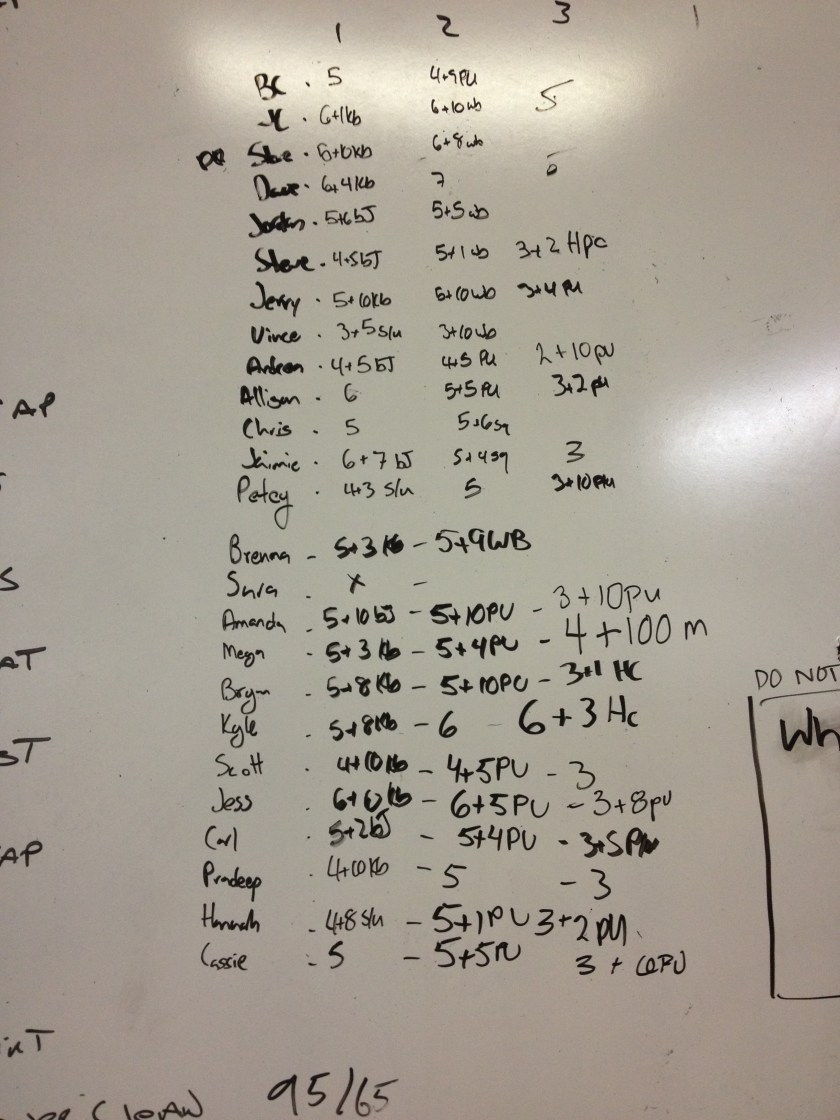 1 2 3
BC . 5 4+9PU
JC . 6+1kb 6+10wb 5
6+10kb 6+8wb
Dave . 6+4kb 7
Jordan . 5+6bJ 5+5wb
Steve . 4+5bJ 5+1wb 3+2 Hpc
Jerry . 5+10kb 5+10wb 3+4 PU
Vince . 3+5 s/u 3+10wb
4+5bJ 4+5 PU 2+10pu
AP
Allison . 6 5+5PU 3+2pu
Chris . 5 5+6sq
Jaimie . 6+7bJ 5+4sq 3
Petey . 4+3 s/u 5 3+10PU
Brenna - 5+3kb - 5+9WB
S
Sara . x -
Amanda - 5+10bJ - 5+10PU - 3+10pu
AT
Megan . 5+3kb - 5+4PU - 4+100m
DO NOT
Bryn - 5+8kb - 5+10PU - 3+1 HC
Kyle . 5+8kb - 6 6+3 Hc
Wh
ST
Scott . 4+10kb - 4+5PU - 3
Jess . 6+6kb - 6+5PU - 3+8pu
Carl . 5+2bJ - 5+4PU - 3+5PU
AP
Pradeep . 4+10kb - 5 - 3
Hannah - 4+8 s/u - 5+1PU 3+2pu
Cassie - 5 - 5+5PU 3+10PU
95/65